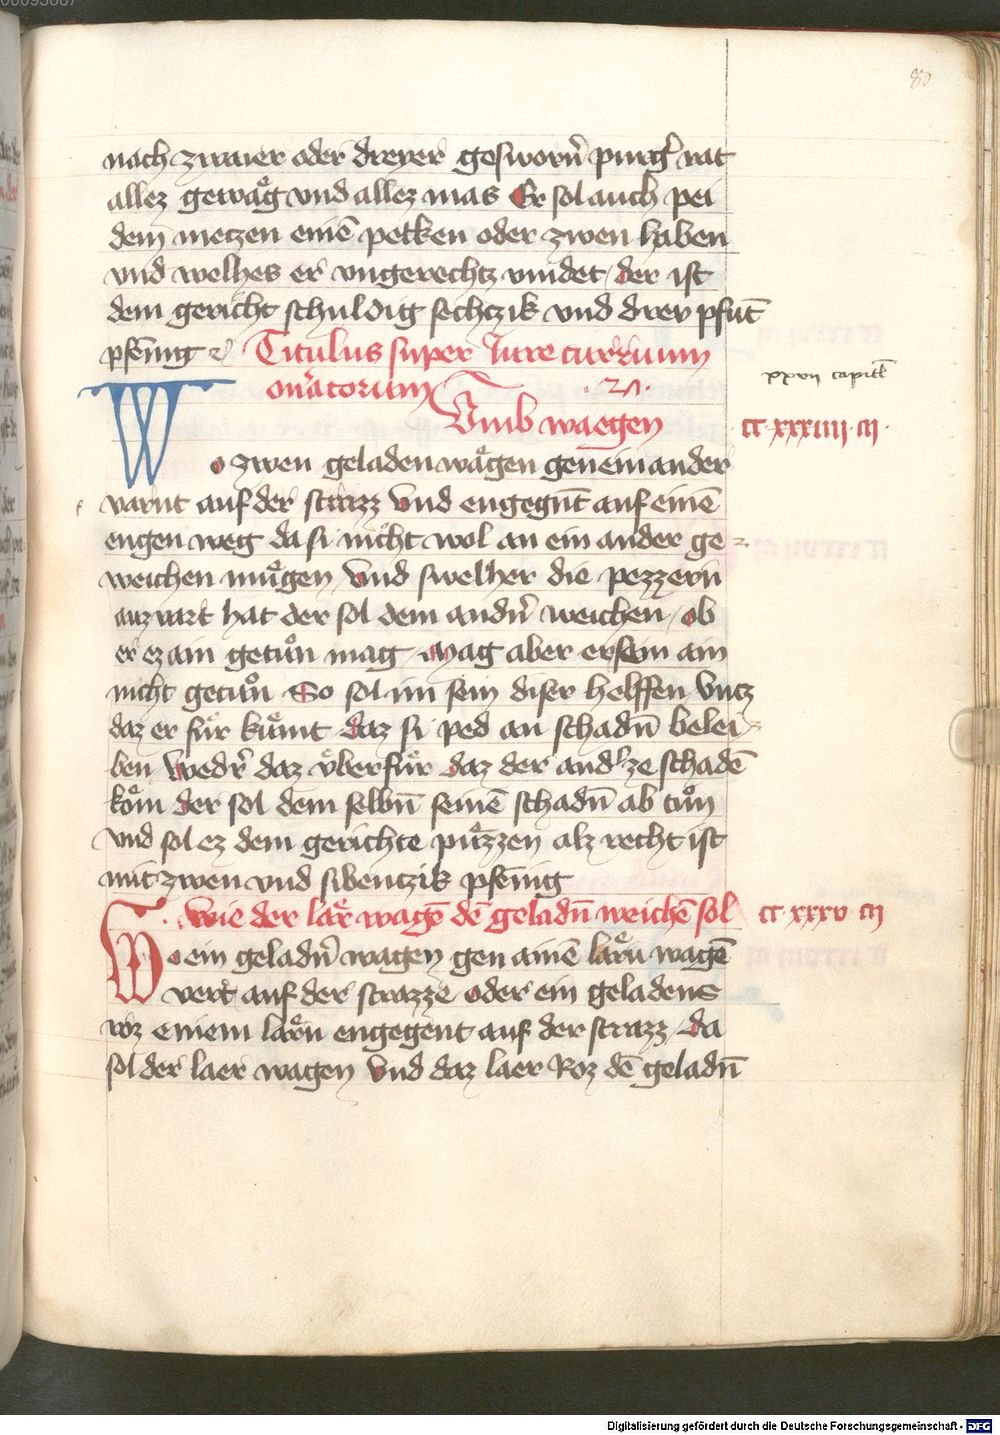 80
nach zwaier oder dreyer gesworñ purgˀ rat
allez gewaͤg vnd allez mas Er sol auch pei
dem metzen einē petken oder zwen haben
vnd welhes er vngerechtz vindet der ist
dem gericht schuldig sechczik vnd drey pfūt
pfēnig Titulus super Iure curruum
xxvii capitl
Vmb waegen
cc xxxiiii
Wo zwen geladen waͤgen gen ein ander
varnt auf der strazz vnd engegnt auf einē
engen weg da si nicht wol an ein ander ge
weichen muͤgen vnd swelher die pezzern
auzvart hat der sol dem andñ weichen ob
er ez ain getuͦn mag mag aber er sein ain
nicht getuͦn So sol im sein diser helffen vntz
daz er fuͤr kuͤmt daz si ped an schadn̄ belei
ben wedˀ daz vͤberfuͤr daz der andˀ ze schadē
koͤm der sol dem selbn̄ seinē schadn̄ ab tuͦn
vnd sol ez dem gerichte puͤzzen alz recht ist
mit zwen vnd sibentzik pfēnig
Wie der laͤr wagē dē geladn̄ weichē sol
cc xxxv
Wo ein geladñ wagen gen ainē laͤrn wagē
vert auf der strazze oder ein geladens
roz einem laͤrn engegent auf der strazz da
sol der laer wagen vnd daz laer Roz dē geladn̄
Digitalisierung gefördert durch die Deutsche Forschungsgemeinschaft - DFG